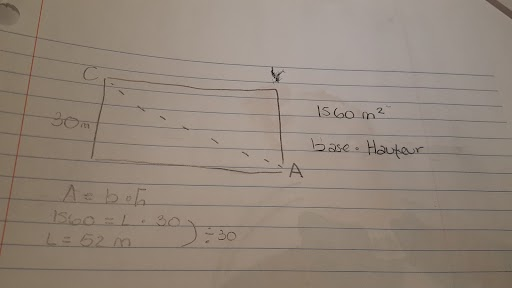 C
30m
A
1560 m²
base · Hauteur
A = b · h
1560 = L · 30
L = 52 m
÷ 30